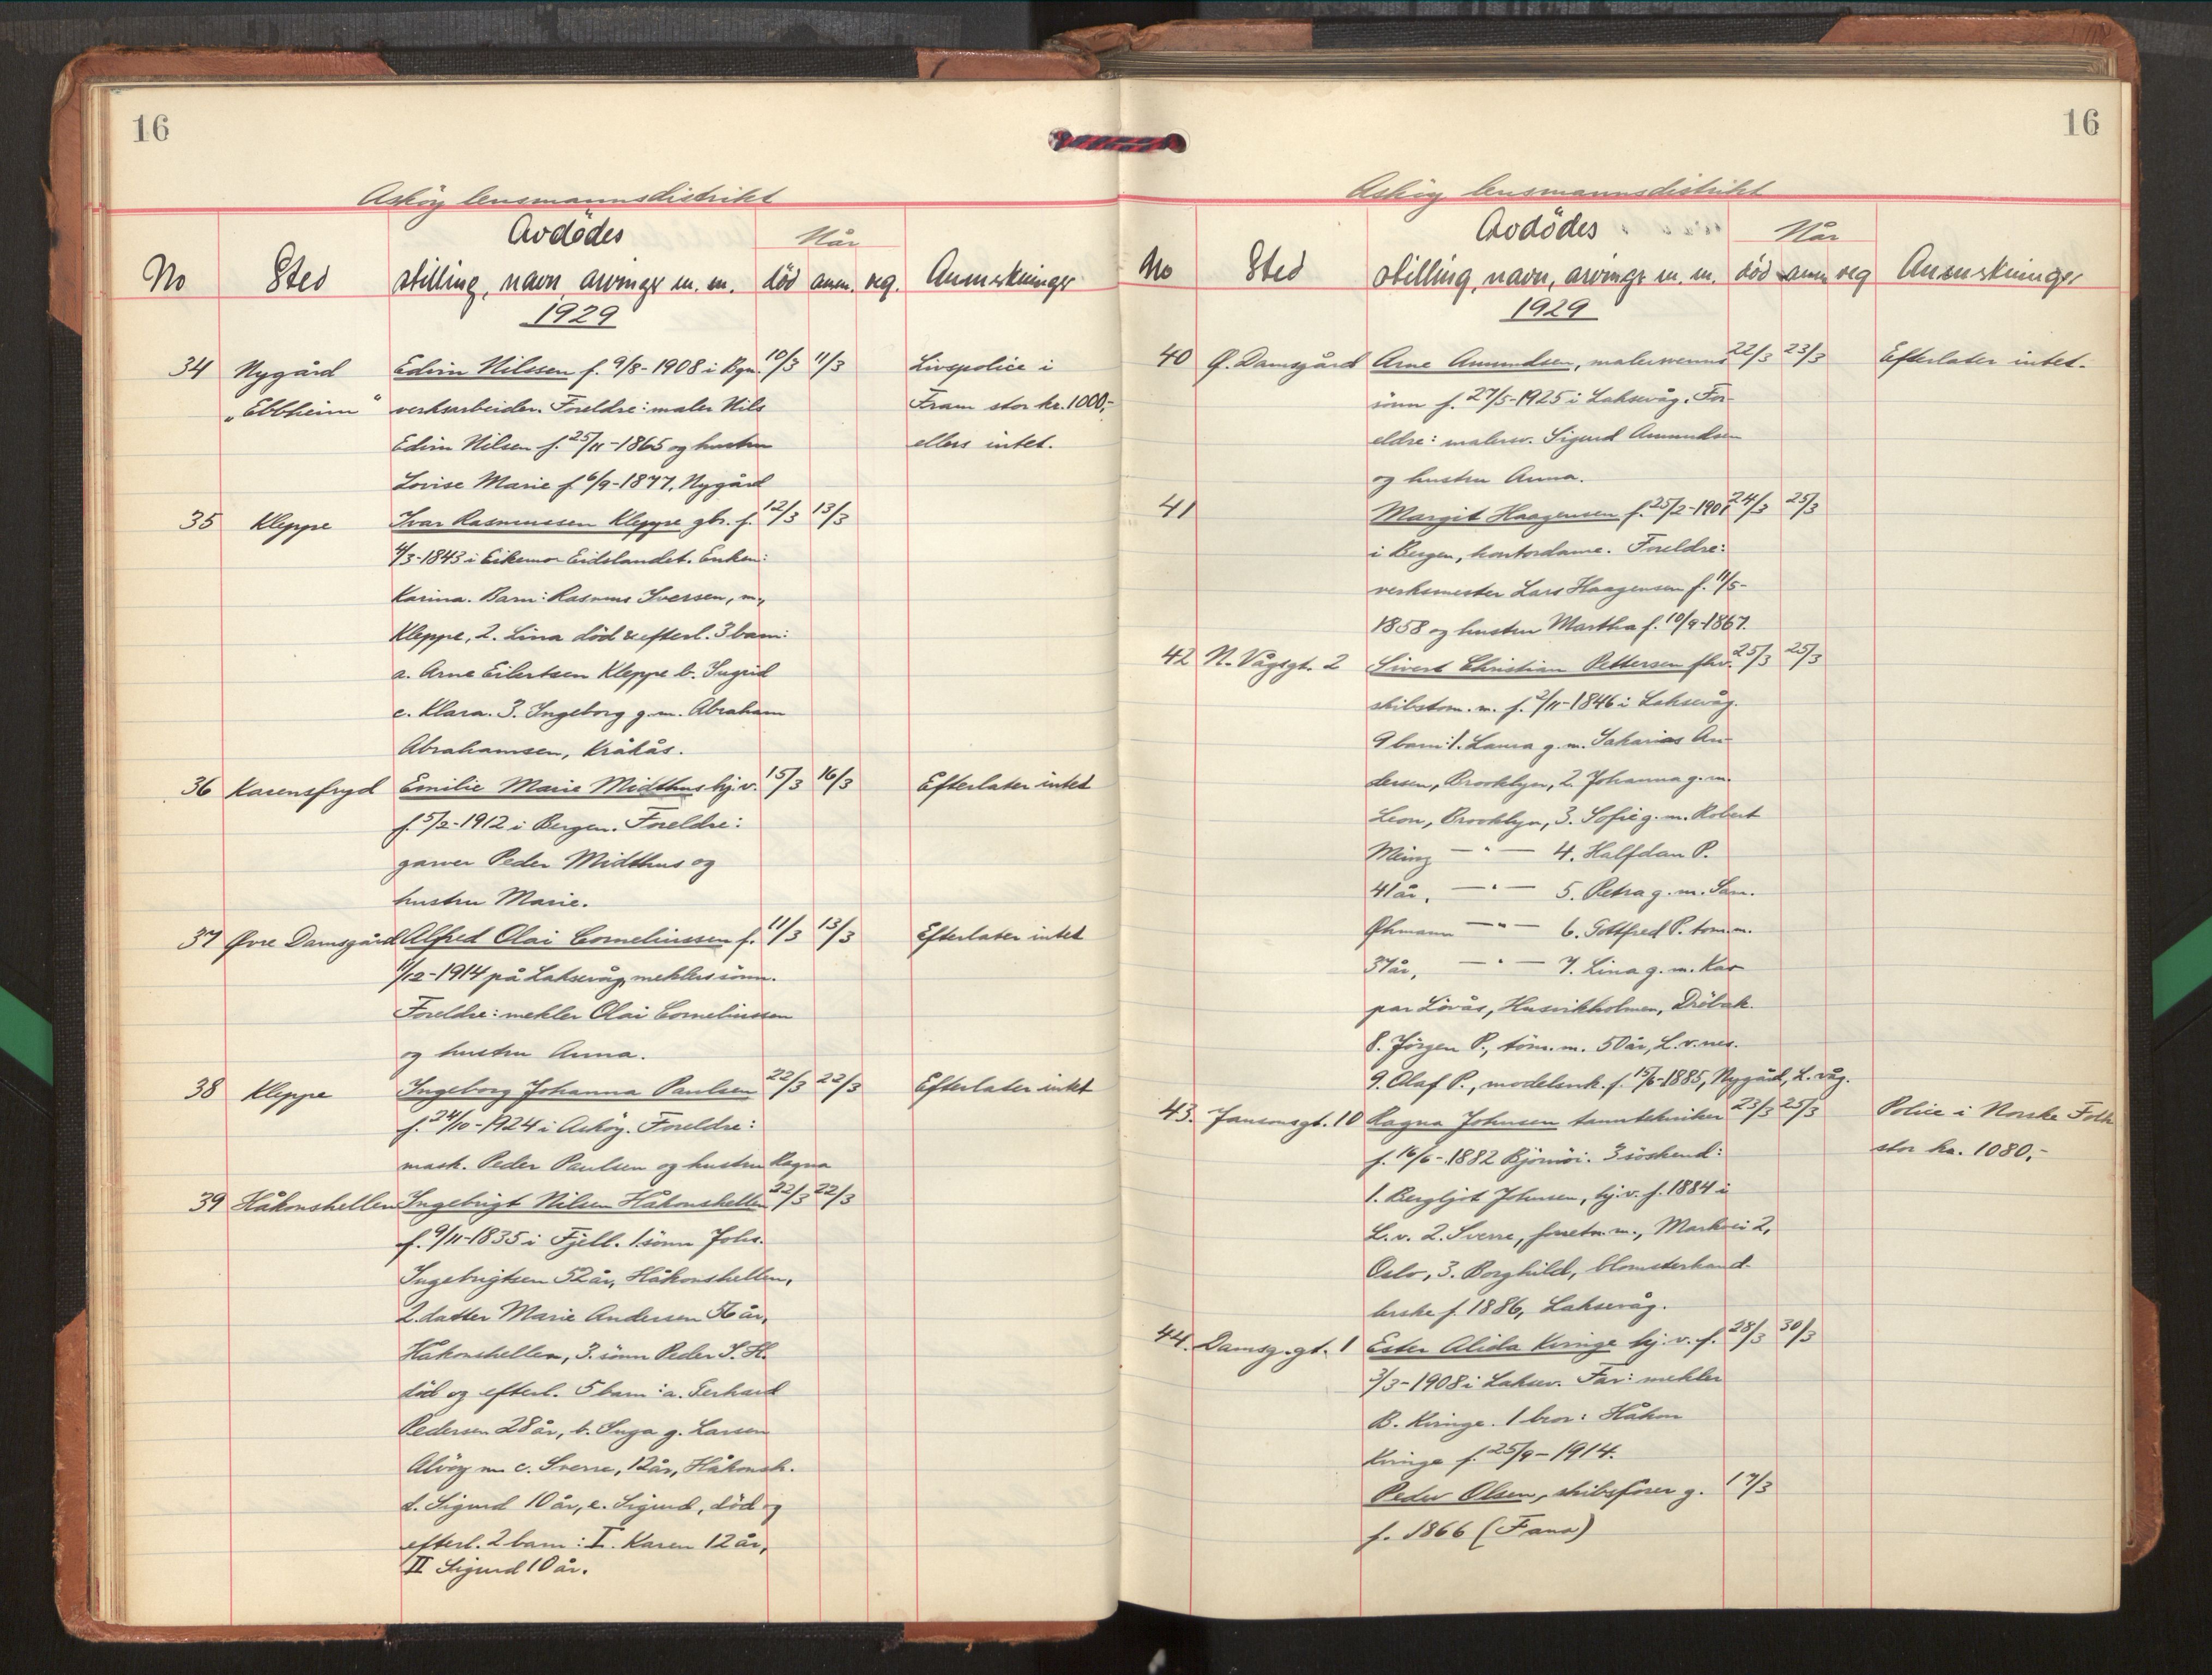 16
Askøy lensmannsdistrikt
Avdödes
Når
No Sted stilling, navn, arvinger m. m. död anm. reg. Anmerkninger
1929
34 Nygård Edvin Nilssen f. 9/8-1908 i Bgn. 10/3 11/3 Livspolice i
"Ebbheim" verksarbeider. Foreldre: maler Nils Fram stor kr. 1000,-
Edvin Nilsen f. 25/11-1865 og hustru ellers intet.
Lovise Marie f. 6/9-1877, Nygård
35 Kleppe Ivar Rasmussen Kleppe gbr. f. 12/3 13/3
4/3-1843 i Eikemo Eidslandet. Enken:
Karina. Barn: Rasmus Iversen, m.,
Kleppe, 2. Lina död & efterl. 3 barn:
a. Arne Eilertsen Kleppe b. Ingrid
c. Klara. 3. Ingeborg g.m. Abraham
Abrahamsen, Kråkås.
36 Karensfryd Emilie Marie Midthus hj.v. 15/3 16/3 Efterlater intet
f. 5/2-1912 i Bergen. Foreldre:
garver Peder Midthus og
hustru Marie.
37 Øvre Damsgård Alfred Olai Corneliussen f. 11/3 13/3 Efterlater intet
1/12-1914 på Laksevåg, meklers sönn.
Foreldre: mekler Olai Corneliussen
og hustru Anna.
38 Kleppe Ingeborg Johanna Paulsen 22/3 22/3 Efterlater intet
f. 24/10-1924 i Askøy. Foreldre:
mask. Peder Paulsen og hustru Ragna
39 Håkonshellen Ingebrigt Nilsen Håkonshellen 22/3 22/3
f. 9/11-1835 i Fjell. 1. sönn Johs.
Ingebrigtsen 52 år, Håkonshellen,
2. datter Marie Andersen 56 år,
Håkonshellen, 3. sönn Peder I. H.
död og efterl. 5 barn: a. Gerhard
Pedersen 28 år, b. Inga g. Larsen
Alvøy m c. Sverre, 12 år, Håkonsh.
d. Sigurd 10 år, e. Sigurd, död og
efterl. 2 barn: I. Karen 12 år,
II Sigurd 10 år.
16
Askøy lensmannsdistrikt
Avdödes
Når
No Sted stilling, navn, arvinger m. m. död anm reg Anmerkninger
1929
40 Ø. Damsgård Arne Amundsen, malersvenns 22/3 23/3 Efterlater intet.
sönn f. 27/5-1925 i Laksevåg. For-
eldre: malersv. Sigurd Amundsen
og hustru Anna.
41 Margit Haagensen f. 25/2-1901 24/3 25/3
i Bergen, kontordame. Foreldre:
verksmester Lars Haagensen f. 11/5-
1858 og hustru Martha f. 10/9-1867.
42 N. Vågsgt. 2 Sivert Christian Pettersen fhv. 25/3 25/3
skibstöm. m. f. 2/11-1846 i Laksevåg.
9 barn: 1. Laura g.m. Sakarias An-
dersen, Brooklyn, 2. Johanna g.m.
Leon, Brooklyn, 3. Sofie g.m. Robert
—"— 4. Halfdan P.
41 år, —"— 5. Petra g.m. Sam.
Øhmann —"— 6. Gottfred P. töm.m.
37 år, —"— 7. Lina g.m. Kas-
par Lövås, Husvikholmen, Dröbak.
8. Jörgen P., töm.m. 50 år, L.v.nes.
9. Olaf P., modelsnk. f. 15/6-1885, Nygård, L.våg.
43. Jansonsgt. 10 Ragna Johnsen tanntekniker 23/3 25/3 Police i Norske Folk
f. 16/6-1882 Björnöi. 3 söskend: stor kr. 1080,-
1. Bergljot Johnsen, hj.v. f. 1884 i
L.v. 2. Sverre, forretn.m., Markvei 2,
Oslo, 3. Borghild, blomsterhand-
lerske f. 1886, Laksevåg.
44. Damsg.gt. 1 Ester Alida Kvinge hj.v. f. 28/3 30/3
3/3-1908 i Laksev. Far: mekler
B. Kvinge. 1 bror: Håkon
Kvinge f. 25/9-1914.
Peder Olsen, skibsförer g. 17/3
f. 1866 (Fana)